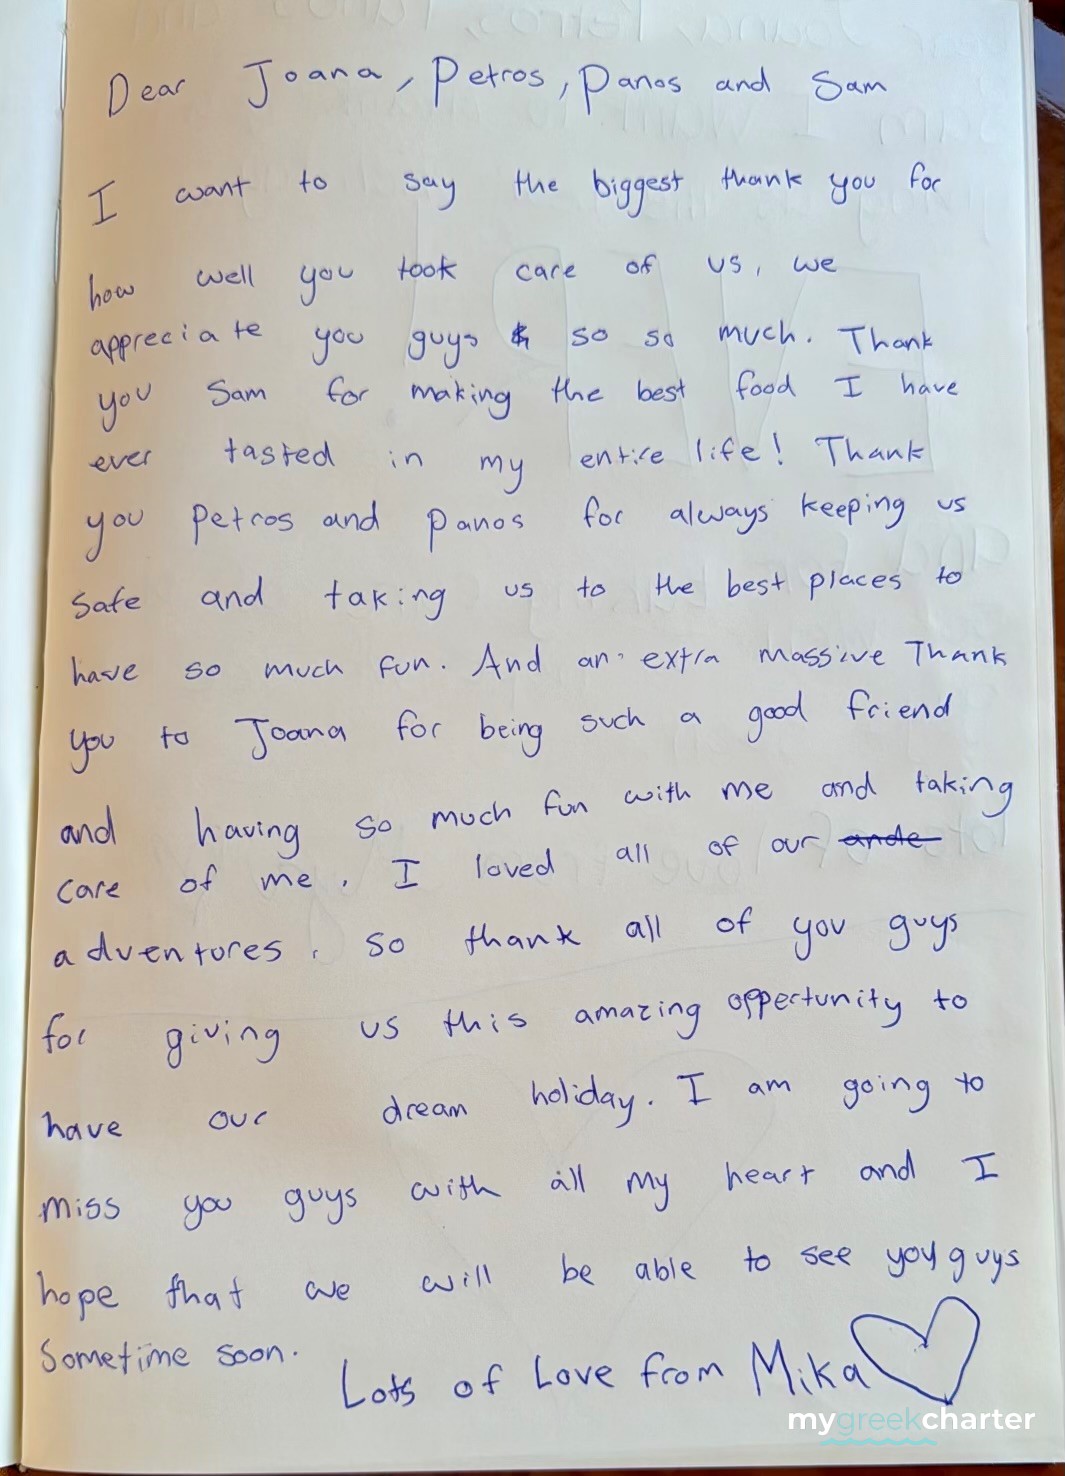 Dear Joana, Petros, Panos and Sam
I want to say the biggest thank you for
how well you took care of us, we
appreciate you guys so so much. Thank
you Sam for making the best food I have
ever tasted in my entire life! Thank
you Petros and Panos for always keeping us
safe and taking us to the best places to
have so much fun. And an extra massive Thank
you to Joana for being such a good friend
and having so much fun with me and taking
care of me. I loved all of our ande
adventures, so thank all of you guys
for giving us this amazing oppertunity to
have our dream holiday. I am going to
miss you guys with all my heart and I
hope that we will be able to see you guys
Sometime soon.
Lots of Love from Mika
mygreekcharter